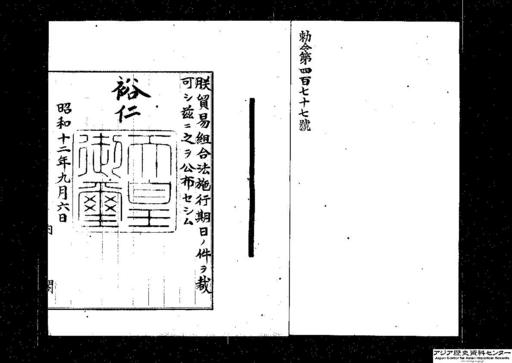 勅令第四百七十七號
朕貿易組合法施行期日ノ件ヲ裁
可シ茲ニ之ヲ公布セシム
裕仁
天皇
御璽
昭和十二年九月六日
内閣
アジア歴史資料センター
Japan Center for Asian Historical Records